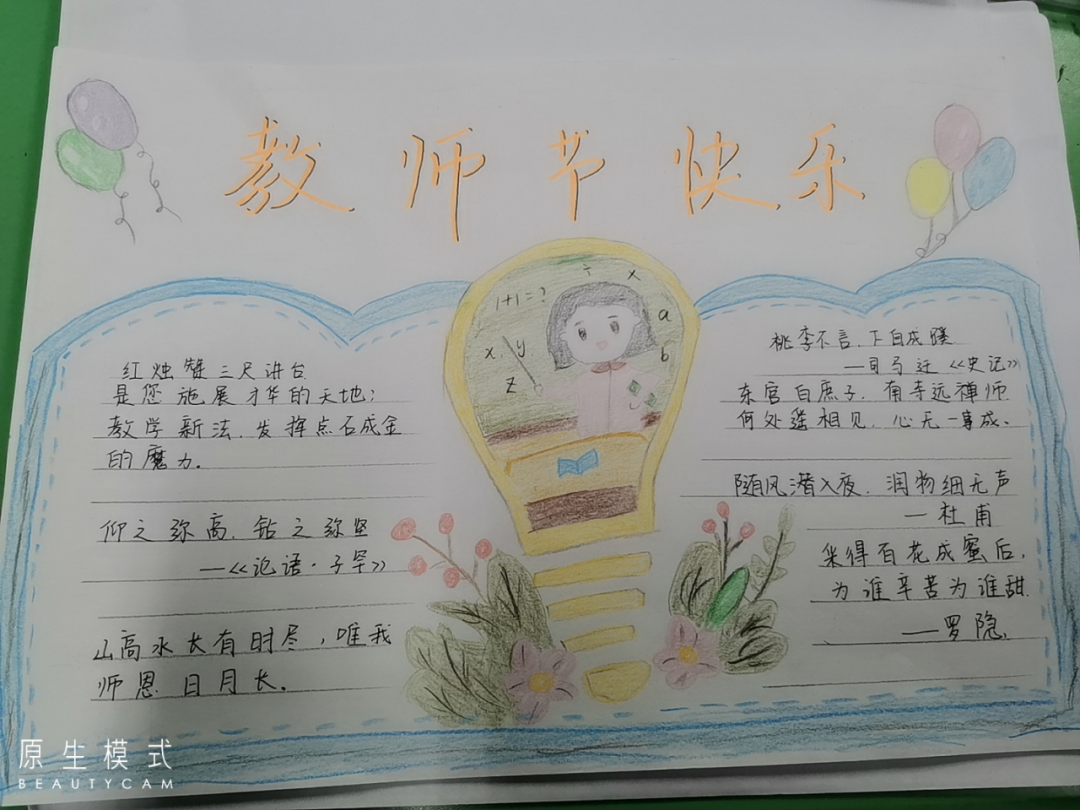 教师节快乐
1+1=?
÷ x
a
x y
b
z
红烛
三尺讲台
是您施展才华的天地;
教学新法,发挥点石成金
的魔力。
仰之弥高,钻之弥坚
—《论语·子罕》
山高水长有时尽,唯我
师恩日月长。
桃李不言,下自成蹊
—司马迁《史记》
东宫白庶子,南寺远禅师
何处遥相见,心无一事成、
随风潜入夜,润物细无声
—杜甫
采得百花成蜜后,
为谁辛苦为谁甜
—罗隐
原生模式
BEAUTYCAM